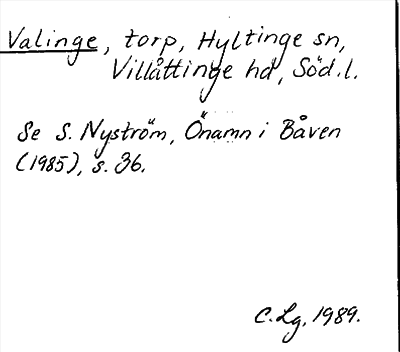 Valinge, torp, Hyltinge sn,
Villåttinge hd, Söd.l.
Se S. Nyström, Önamn i Båven
(1985), s. 36.
C.Lg, 1989.